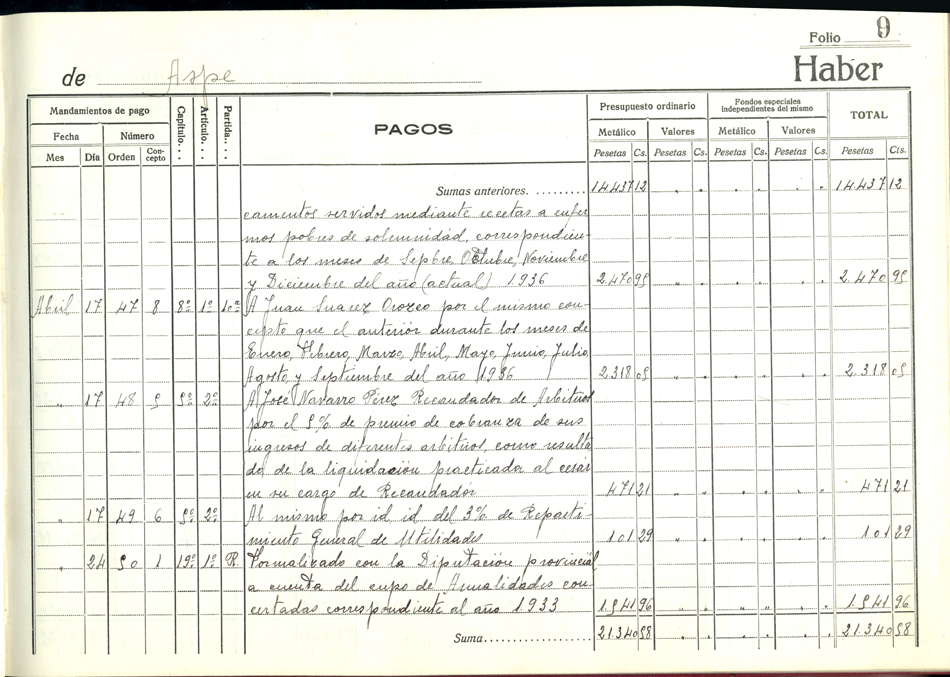 Folio 9
de Aspe Haber
Mandamientos de pago Capítulo... Artículo... Partida.... PAGOS Presupuesto ordinario Fondos especiales independientes del mismo TOTAL
Fecha Número Metálico Valores Metálico Valores
Mes Día Orden Concepto Pesetas Cs. Pesetas Cs. Pesetas Cs. Pesetas Cs. Pesetas Cts.
Sumas anteriores. 14.437 12 " " " " " " 14.437 12
camentos servidos mediante recetas a enfer
mos pobres de solemnidad, correspondien-
te a los meses de Sepbre, Octubre, Noviembre
y Diciembre del año (actual) 1936 2.470 95 " " " " " " 2.470 95
Abril 17 47 8 8º 1º 10ª A Juan Suarez Orozco por el mismo con-
cepto que el anterior durante los meses de
Enero, Febrero, Marzo, Abril, Mayo, Junio, Julio,
Agosto, y Septiembre del año 1936 2.318 05 " " " " " " 2.318 05
" 17 48 5 5º 2º A José Navarro Pérez Recaudador de Arbitrios
por el 5% de premio de cobranza de sus
ingresos de diferentes arbitrios, como resulta
do de la liquidación practicada al cesar
en su cargo de Recaudador 471 21 " " " " " " 471 21
" 17 49 6 5º 2º Al mismo por id, id del 3% de Reparti-
miento General de Utilidades 101 29 " " " " " " 101 29
" 24 50 1 19º 1º R. Formalizado con la Diputación provincial
a cuenta del cupo de Anualidades con-
certadas correspondiente al año 1933 1.541 96 " " " " " " 1.541 96
Suma 21.340 58 " " " " " " 21.340 58